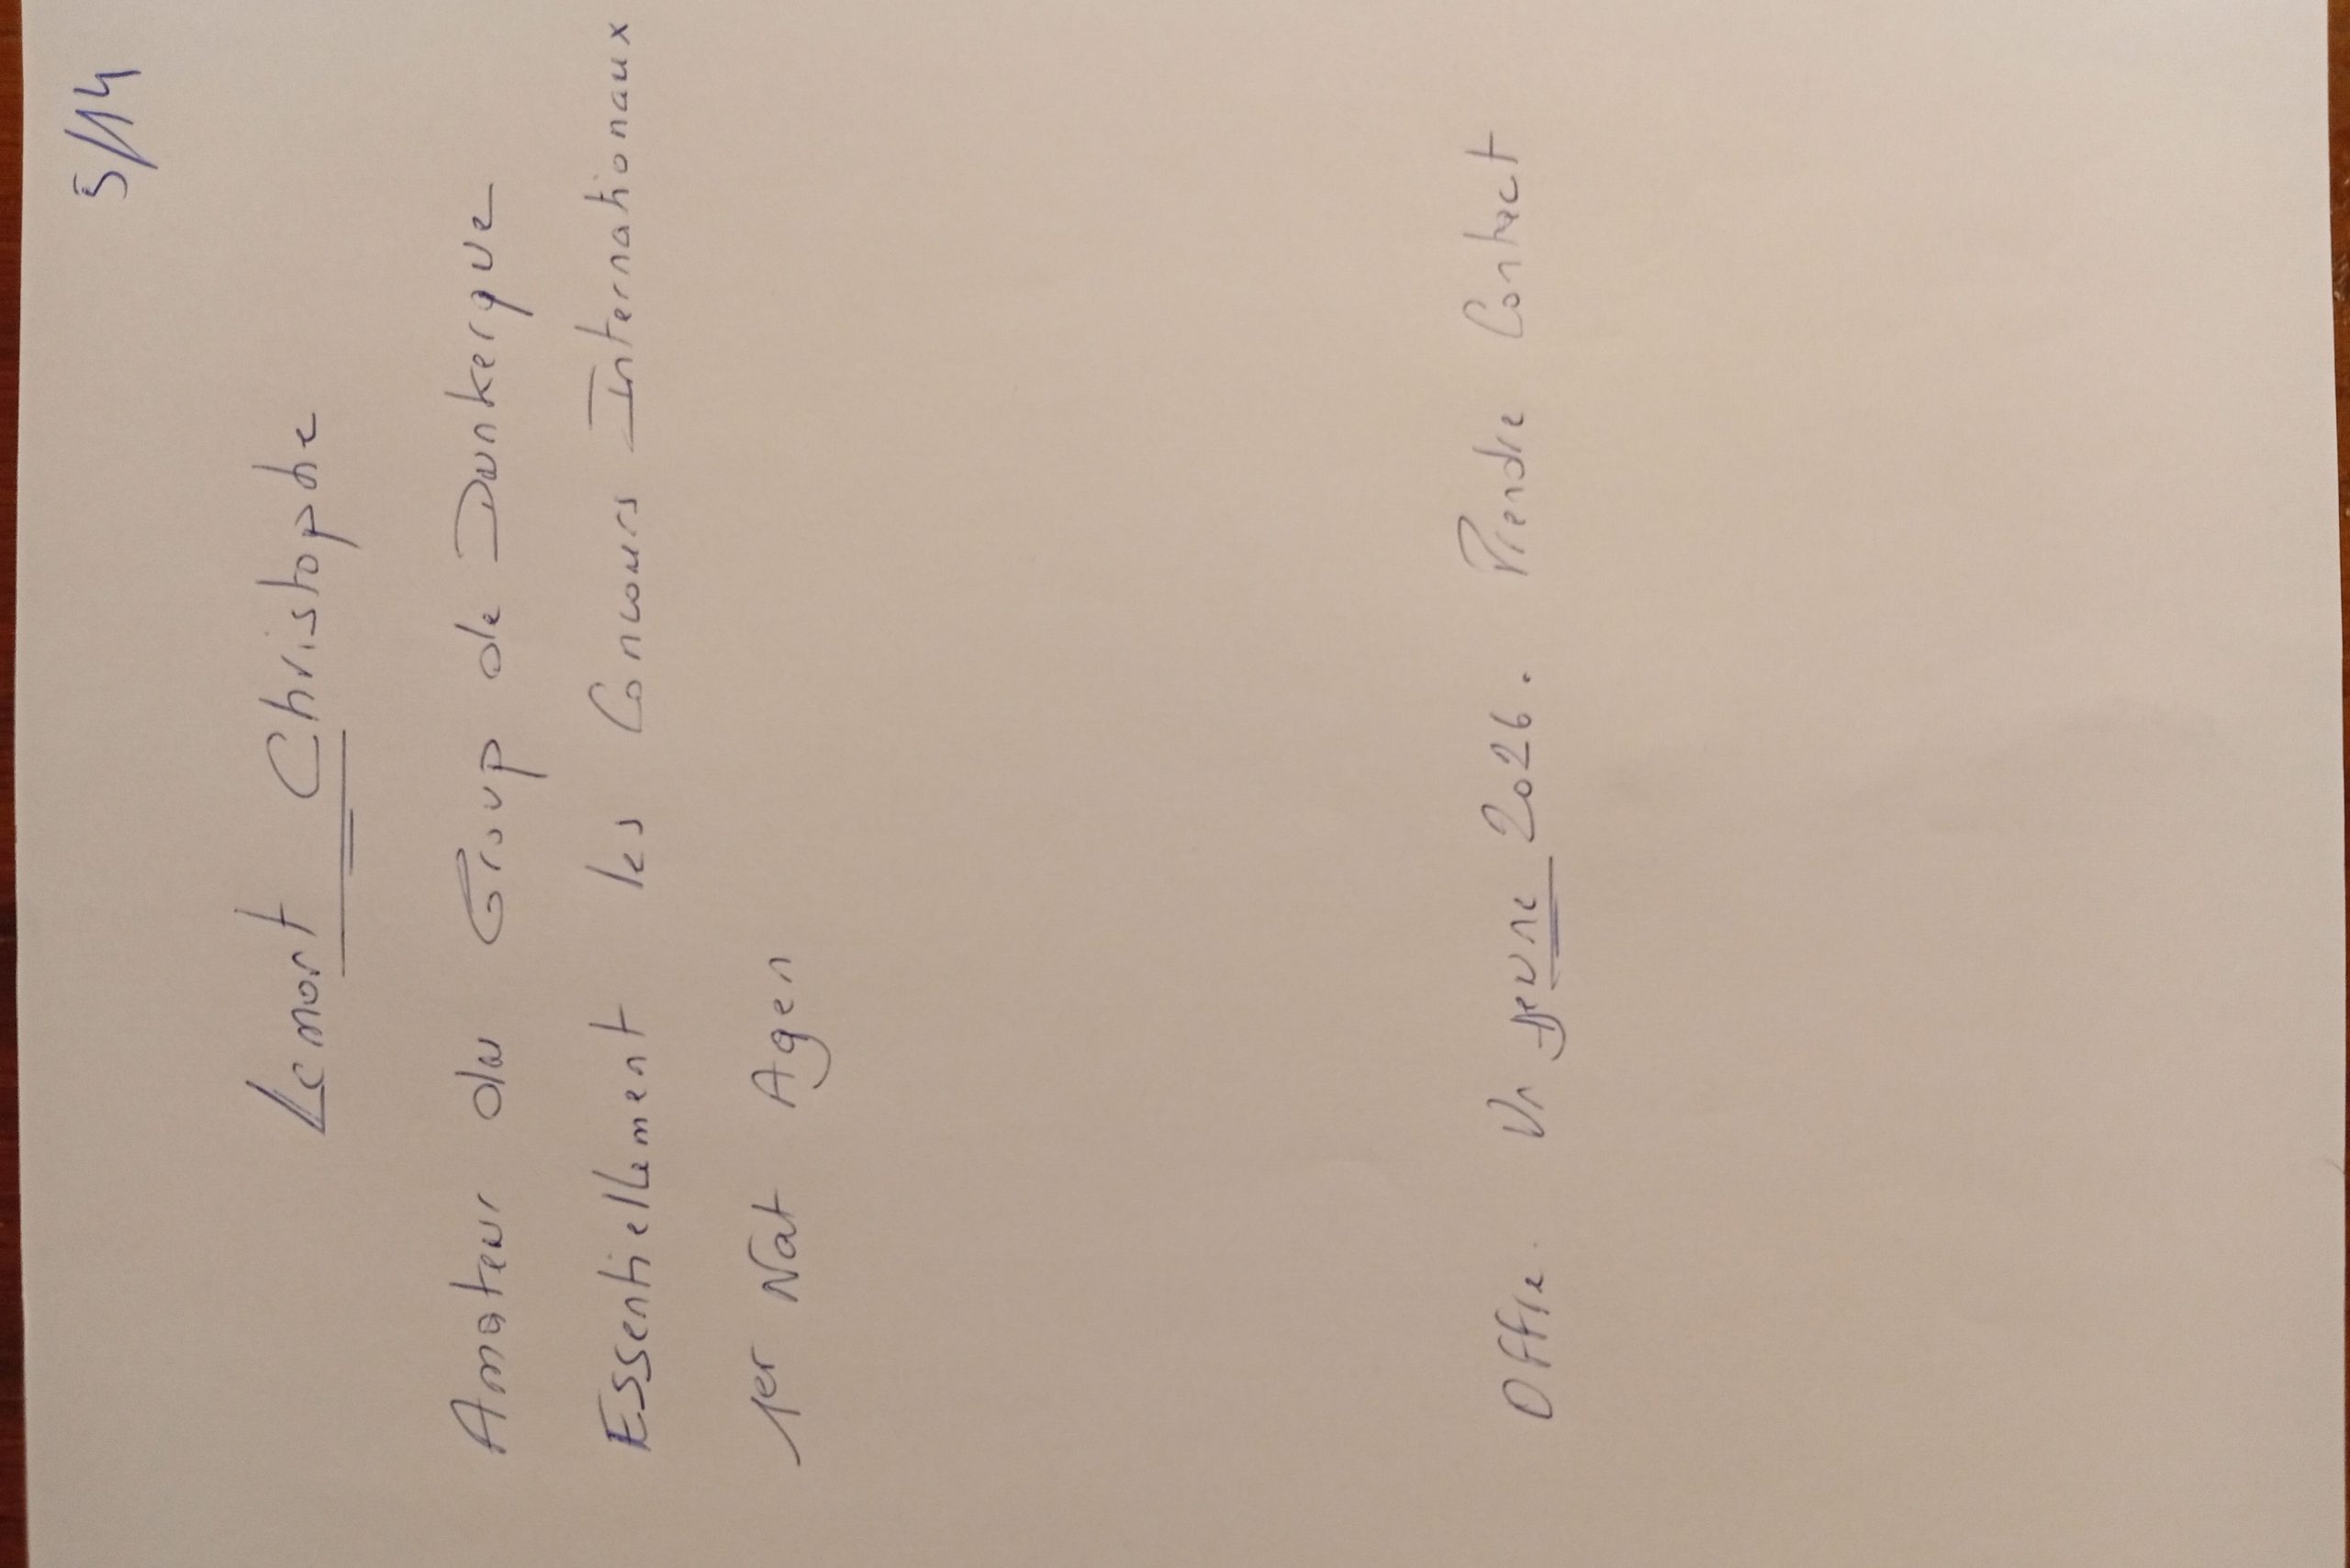 5/14
Lemort Christophe
Amateur du Group de Dunkerque
Essentiellement les Concours Internationaux
1er Nat Agen
Offre. Un jeune 2026. Prendre Contact